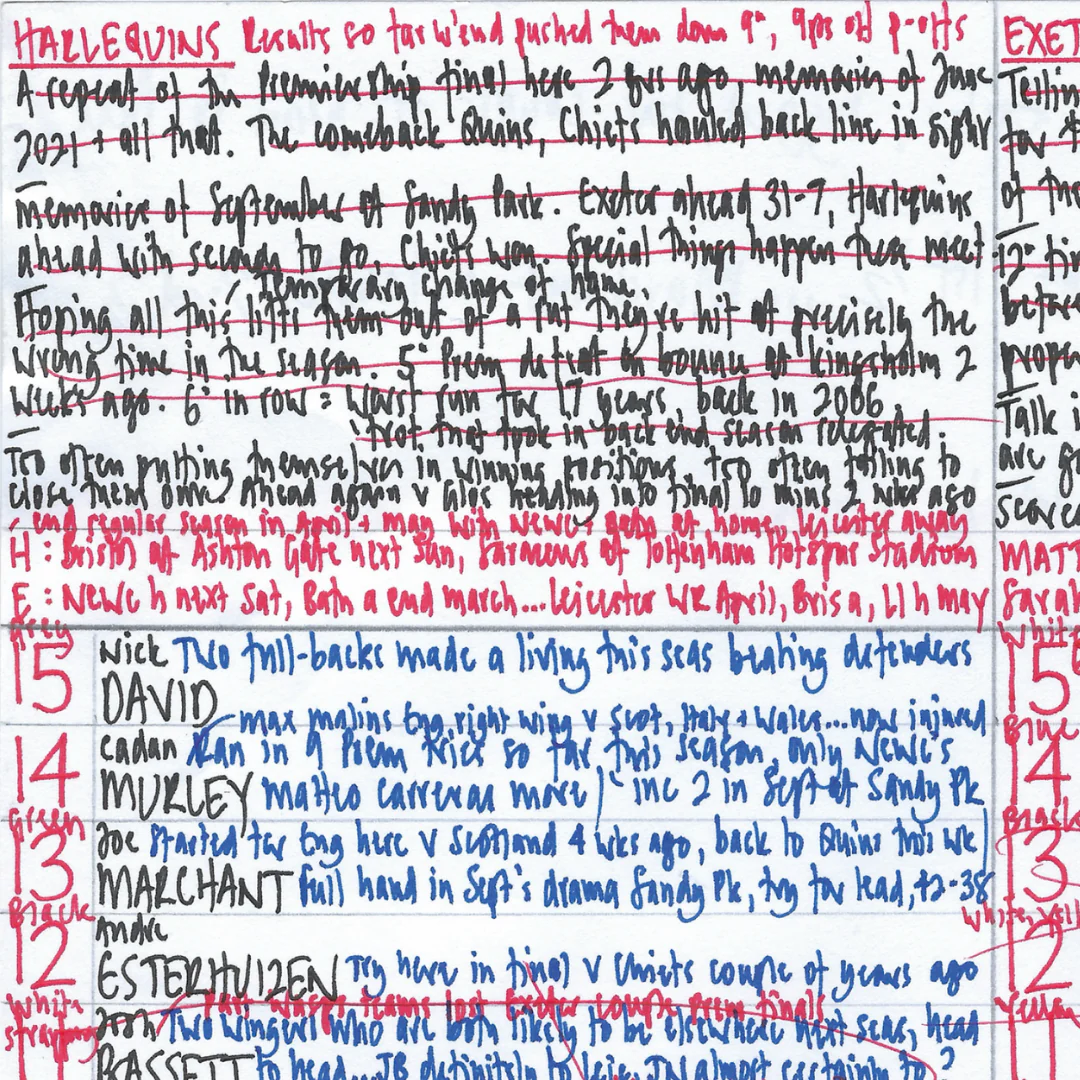 HARLEQUINS Results so far w'end pushed them down 9th, 9pts off p-offs
A repeat of the Premiership final here 2 yrs ago, memories of June
2021 + all that. The comeback Quins, Chiefs hauled back line in sight
Memories of September at Sandy Park. Exeter ahead 31-7, Harlequins
ahead with seconds to go, Chiefs won. Special things happen these meet
temporary change of home
Hoping all this lifts them out of a rut they've hit at precisely the
wrong time in the season. 5th Prem defeat on bounce at Kingsholm 2
weeks ago. 6th in row = worst run for 17 years, back in 2006
that took in back end season relegated.
Too often putting themselves in winning positions, too often failing to
close them out. Ahead again v Glos heading into final 10 mins 2 wks ago
end regular season in April + May with Newc + Bath at home, Leicester away
H : Bristol at Ashton Gate next Sun, Saracens at Tottenham Hotspur Stadium
E : Newc h next Sat, Bath a end March... Leicester WR April, Bris a, LI h May
Grey
15 Nick Two full-backs made a living this seas beating defenders
DAVID
Max Malins Eng right wing v Scot, Italy + Wales... now injured
14 Cadan Ran in 9 Prem tries so far this season, only Newc's
MURLEY Matteo Carreras more inc 2 in Sept at Sandy Pk
Green
13 Joe Started for Eng here v Scotland 4 wks ago, back to Quins this wk
MARCHANT full hand in Sept's drama Sandy Pk, try for lead, 42-38
Black
12 Andre
ESTERHUIZEN Try here in final v Chiefs couple of years ago
White
strapping
part Wasps teams lost Exeter couple Prem finals
11 Josh Two wingers who are both likely to be elsewhere next seas, head
BASSETT to head... JB definitely to Leic, JN almost certainly to ?
EXET
for
of the
12th
before
proper
Talk i
are go
MATT
Sarah
White
15
Blue
14
Black
13
White, yell
12
Yellow
11